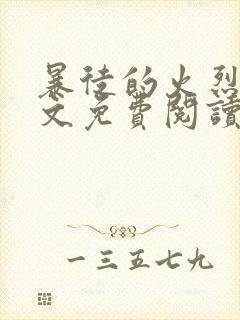 暴徒的火烈
文免費閱讀
一三五七九